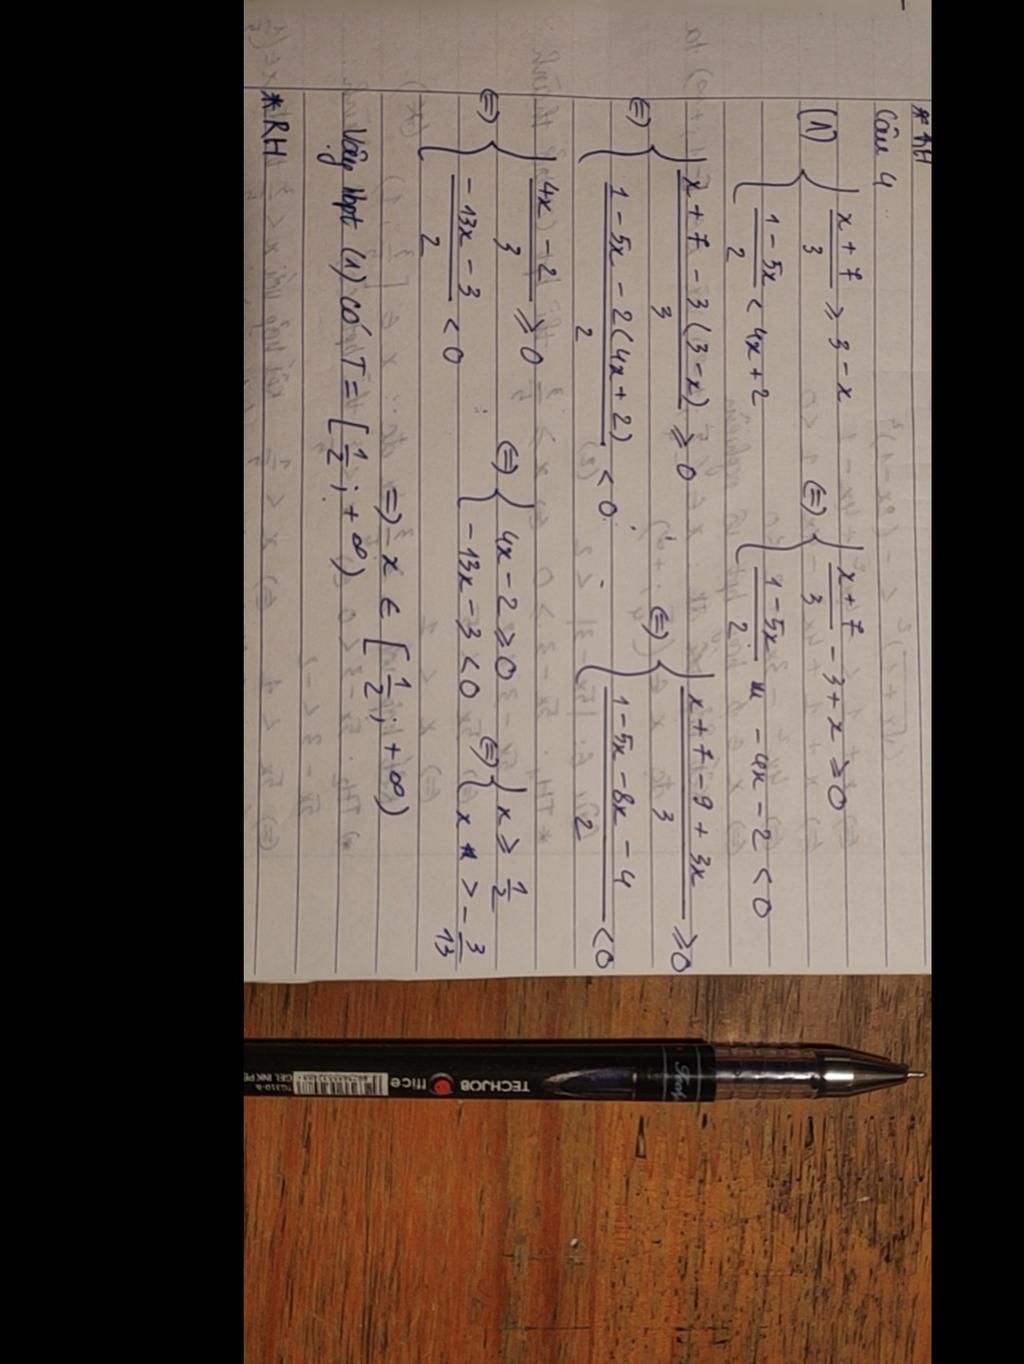 * RH
Câu 4
(1) { (x+7)/3 ≥ 3 - x ; (1-5x)/2 < 4x+2 (=) { (x+7)/3 - 3 + x ≥ 0 ; (1-5x)/2 - 4x - 2 < 0
(=) { (x+7-3(3-x))/3 ≥ 0 ; (1-5x-2(4x+2))/2 < 0 (=) { (x+7-9+3x)/3 ≥ 0 ; (1-5x-8x-4)/2 < 0
(=) { (4x-2)/3 ≥ 0 ; (-13x-3)/2 < 0 (=) { 4x-2 ≥ 0 ; -13x-3 < 0 (=) { x ≥ 1/2 ; x > -3/13
=) x ∈ [1/2; +∞)
Vậy hbpt (1) có T = [1/2; +∞)
* RH
TECHJOB
office
TG310-B
GEL INK PE